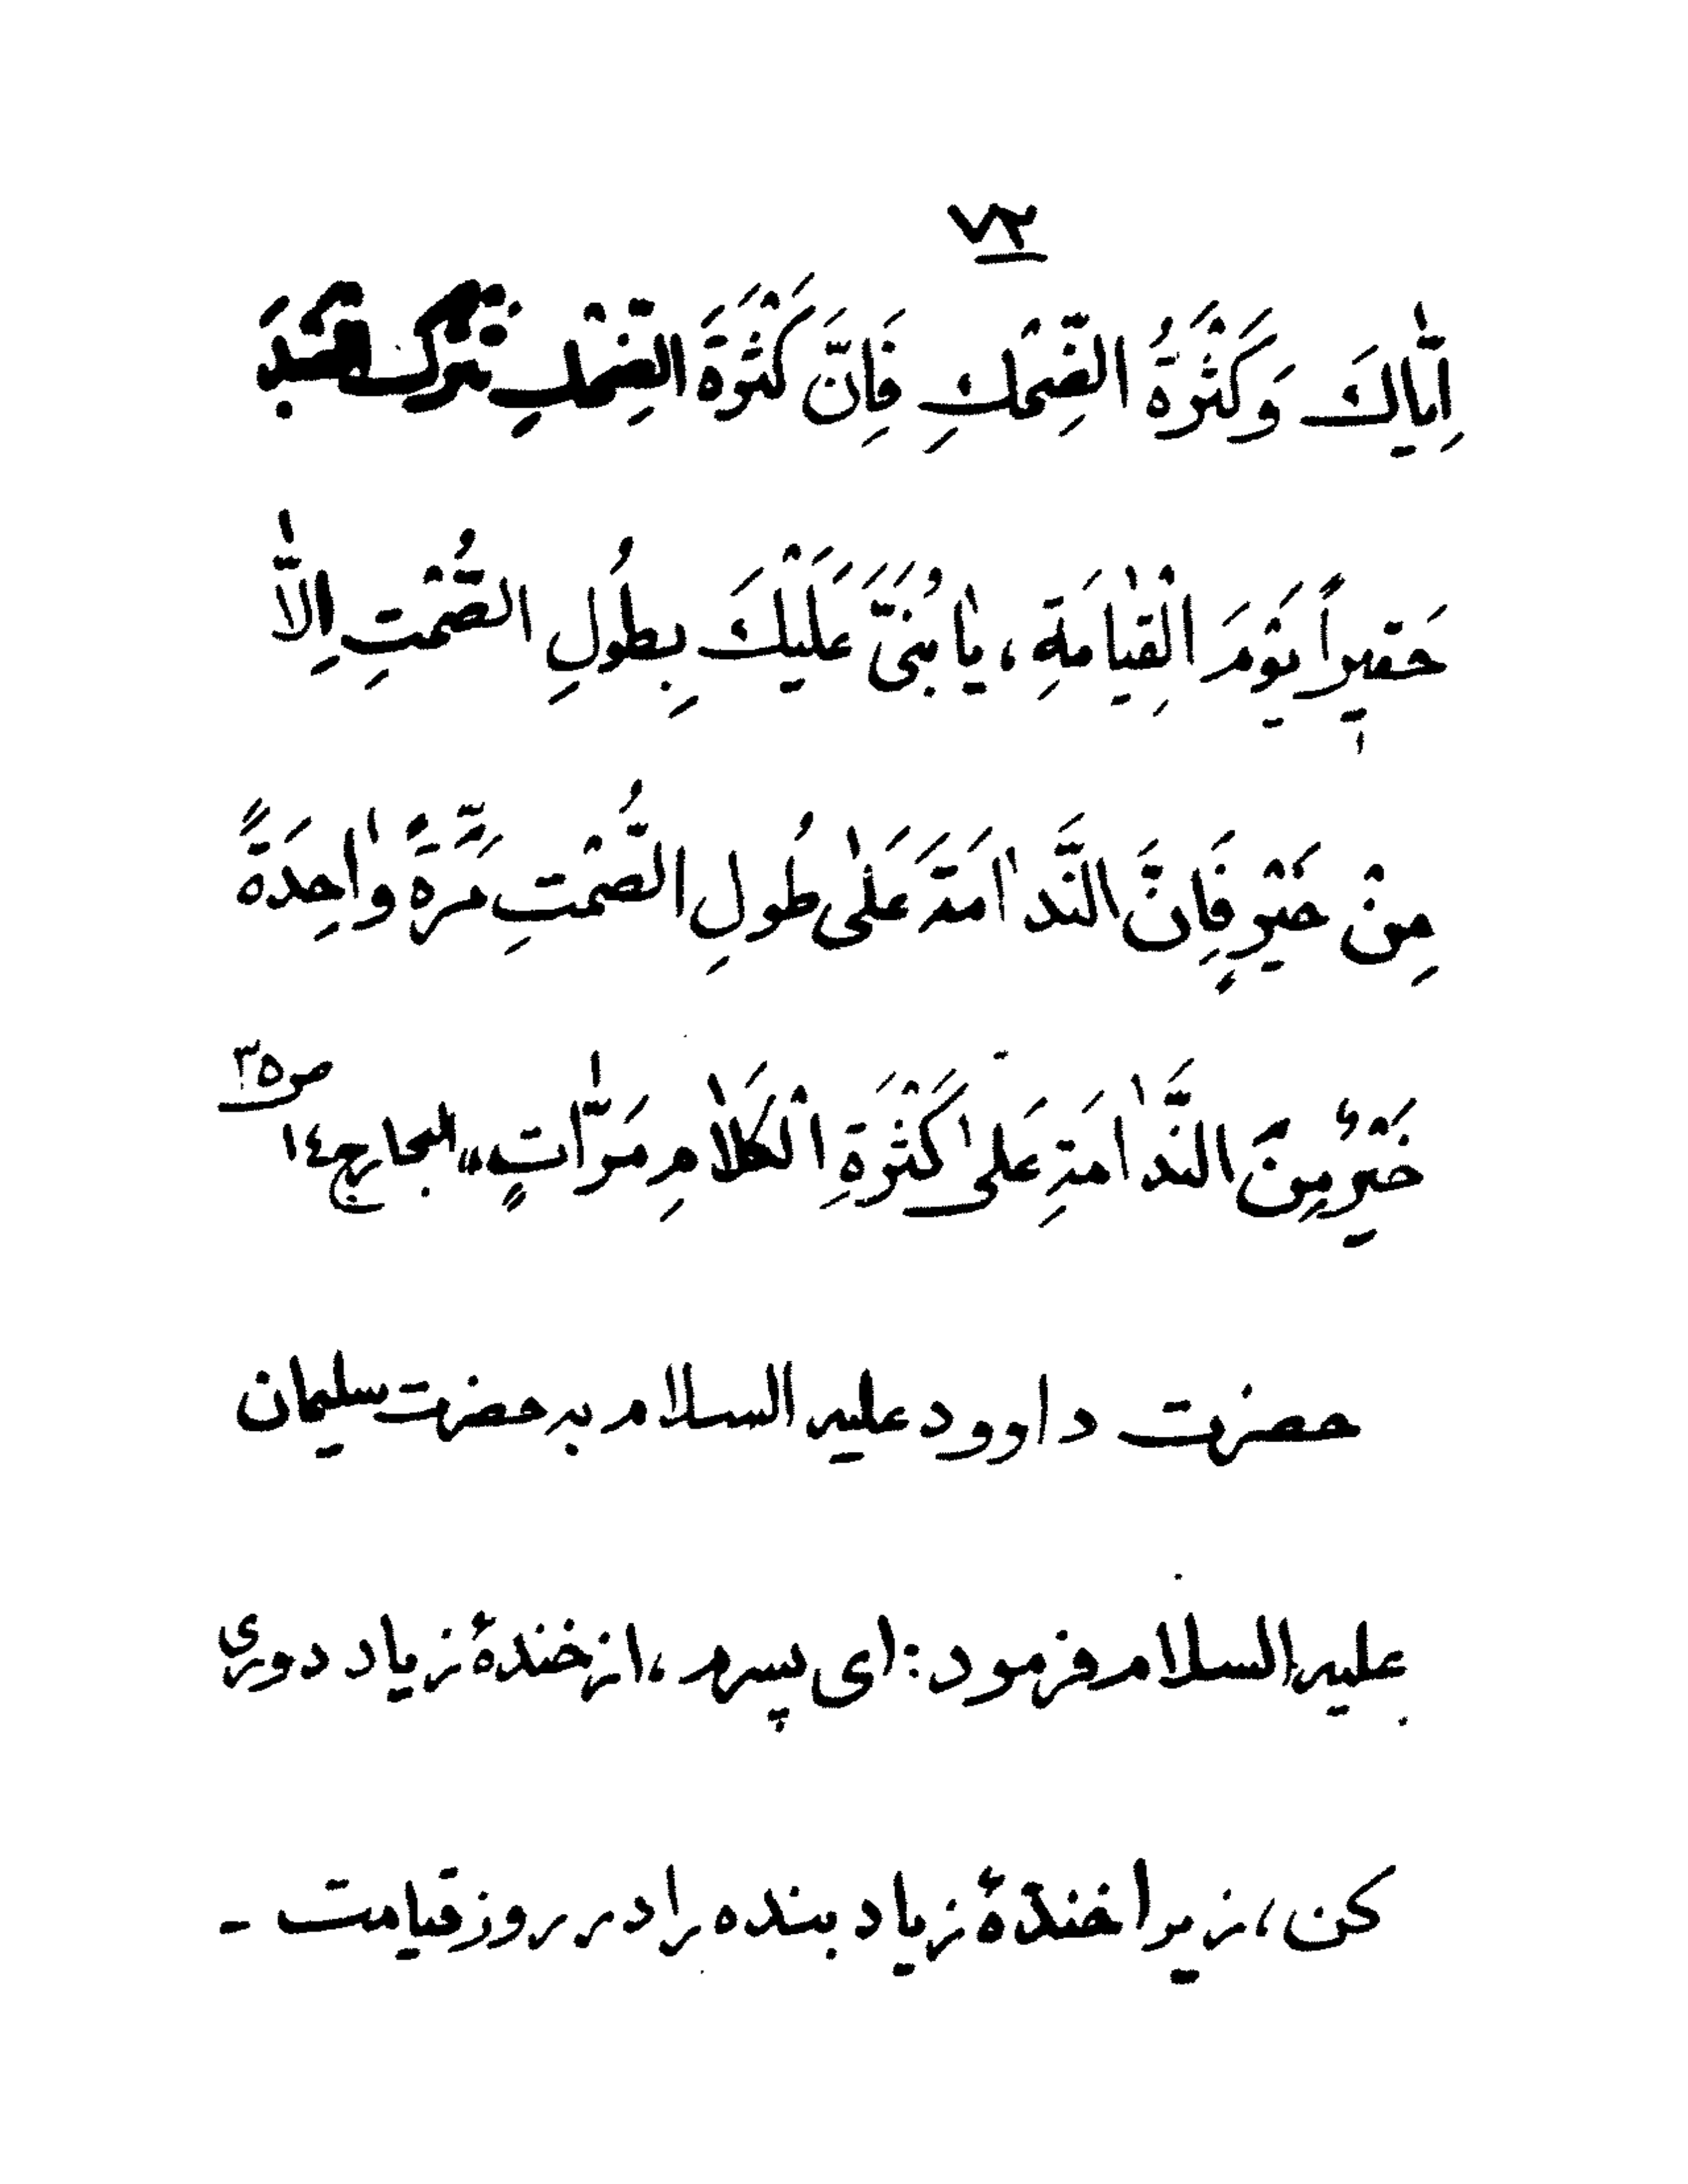 ٧٢
اِيّٰاكَ وَكَثْرَةُ الضِّحْكِ فَاِنَّ كَثْرَةَ الضِّحْكِ تَتْرُكُ الْعَبْدَ
حَقيراً يَوْمَ الْقِيٰامَةِ، يٰا بُنَىَّ عَلَيْكَ بِطُولِ الصُّمْتِ اِلاّٰ
مِنْ خَيْرٍ فَاِنَّ النَّدٰامَةَ عَلٰى طُولِ الصُّمْتِ مَرَّةً وٰاحِدَةً
خَيْرٌ مِنَ النَّدٰامَةِ عَلىٰ كَثْرَةِ الْكَلٰامِ مَرّٰاتٍ» البحار ج ١٤ ص ٣٥
حضرت داوود عليه السلام به حضرت سليمان
عليه السلام فرمود: اى پسرم، از خندهٔ زياد دورى
كن، زيرا خندهٔ زياد بنده را در روز قيامت -